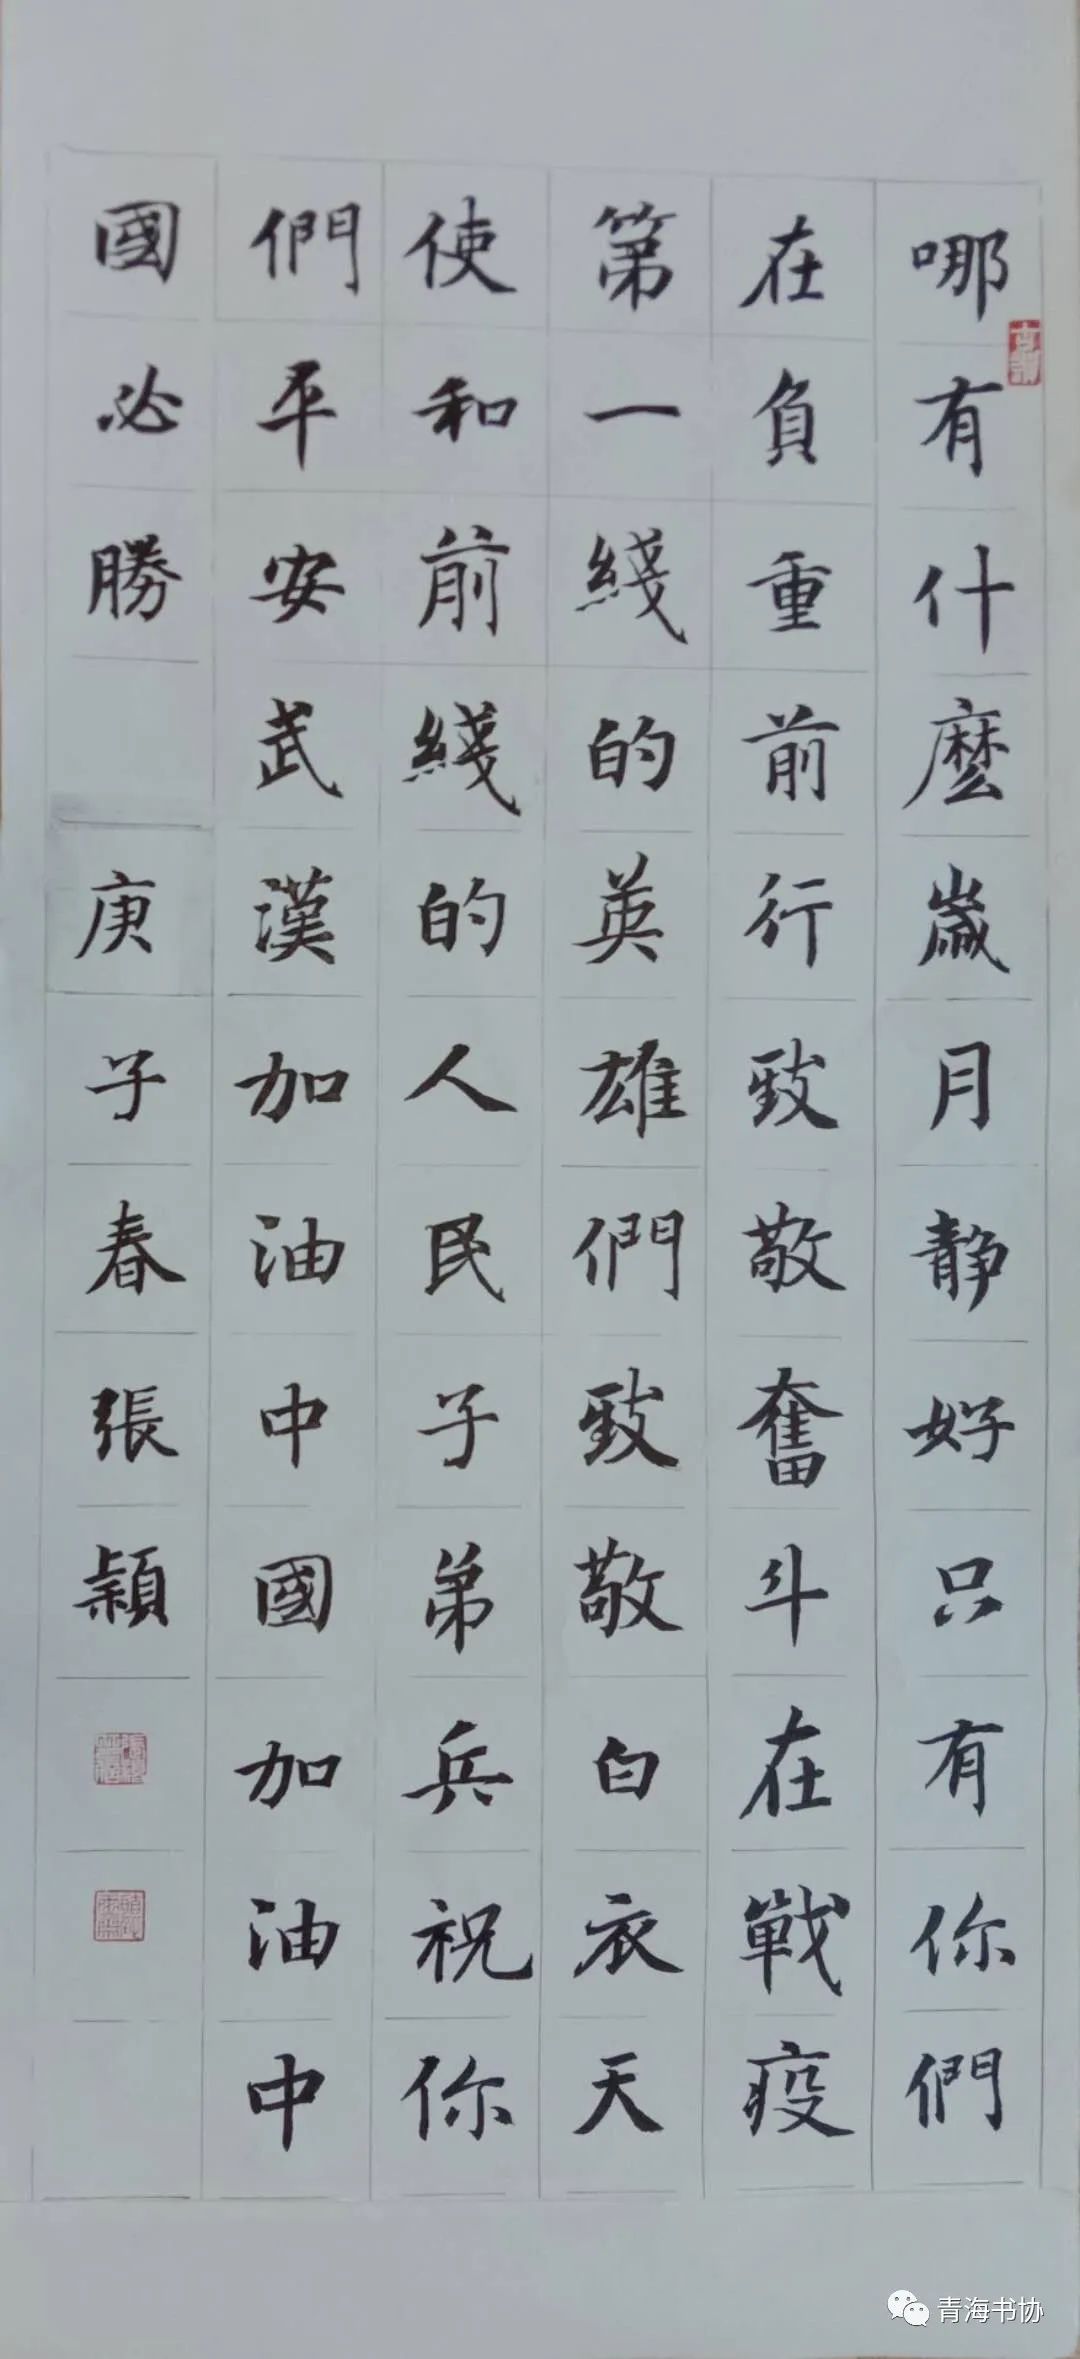 哪有什麽歲月静好只有你們
在負重前行致敬奮斗在戰疫
第一綫的英雄們致敬白衣天
使和前綫的人民子弟兵祝你
們平安武漢加油中國加油中
國必勝 庚子春張穎
青海书协